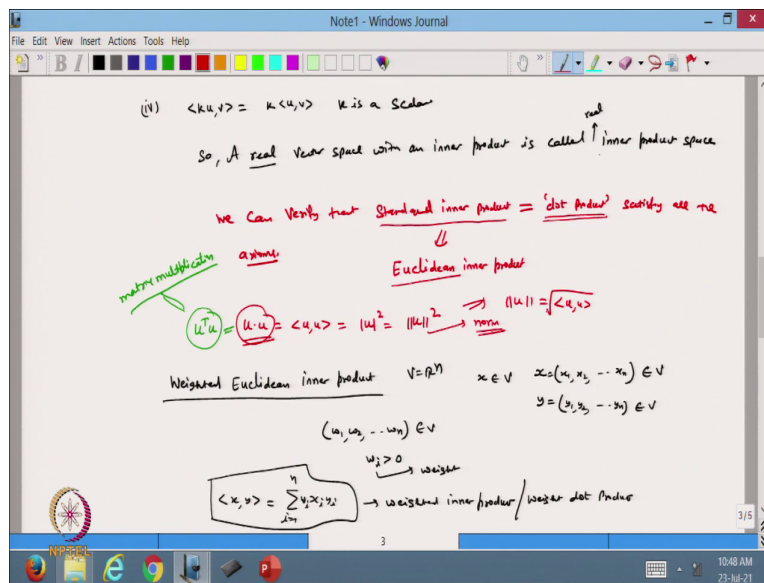 Note1 - Windows Journal
File Edit View Insert Actions Tools Help
(iv) <ku,v> = k<u,v> k is a scalar
real
So, A real vector space with an inner product is called ↑ inner product space
We can verify that Standard inner product = 'dot product' satisfy all the
axioms.
⇓
Euclidean inner product
matrix multiplication
uᵀu = u·u = <u,u> = |u|² = ||u||² ⇒ ||u|| = √<u,u>
→ norm
Weighted Euclidean inner product V=ℝⁿ x∈V x=(x₁,x₂, ... xₙ) ∈ V
y=(y₁,y₂, ... yₙ) ∈ V
(w₁,w₂, ... wₙ) ∈ V
wᵢ>0
→ weight
<x,y> = Σ wᵢxᵢyᵢ → weighted inner product/weight dot product
n
i=1
3/5
3
NPTEL
10:48 AM
23-Jul-21